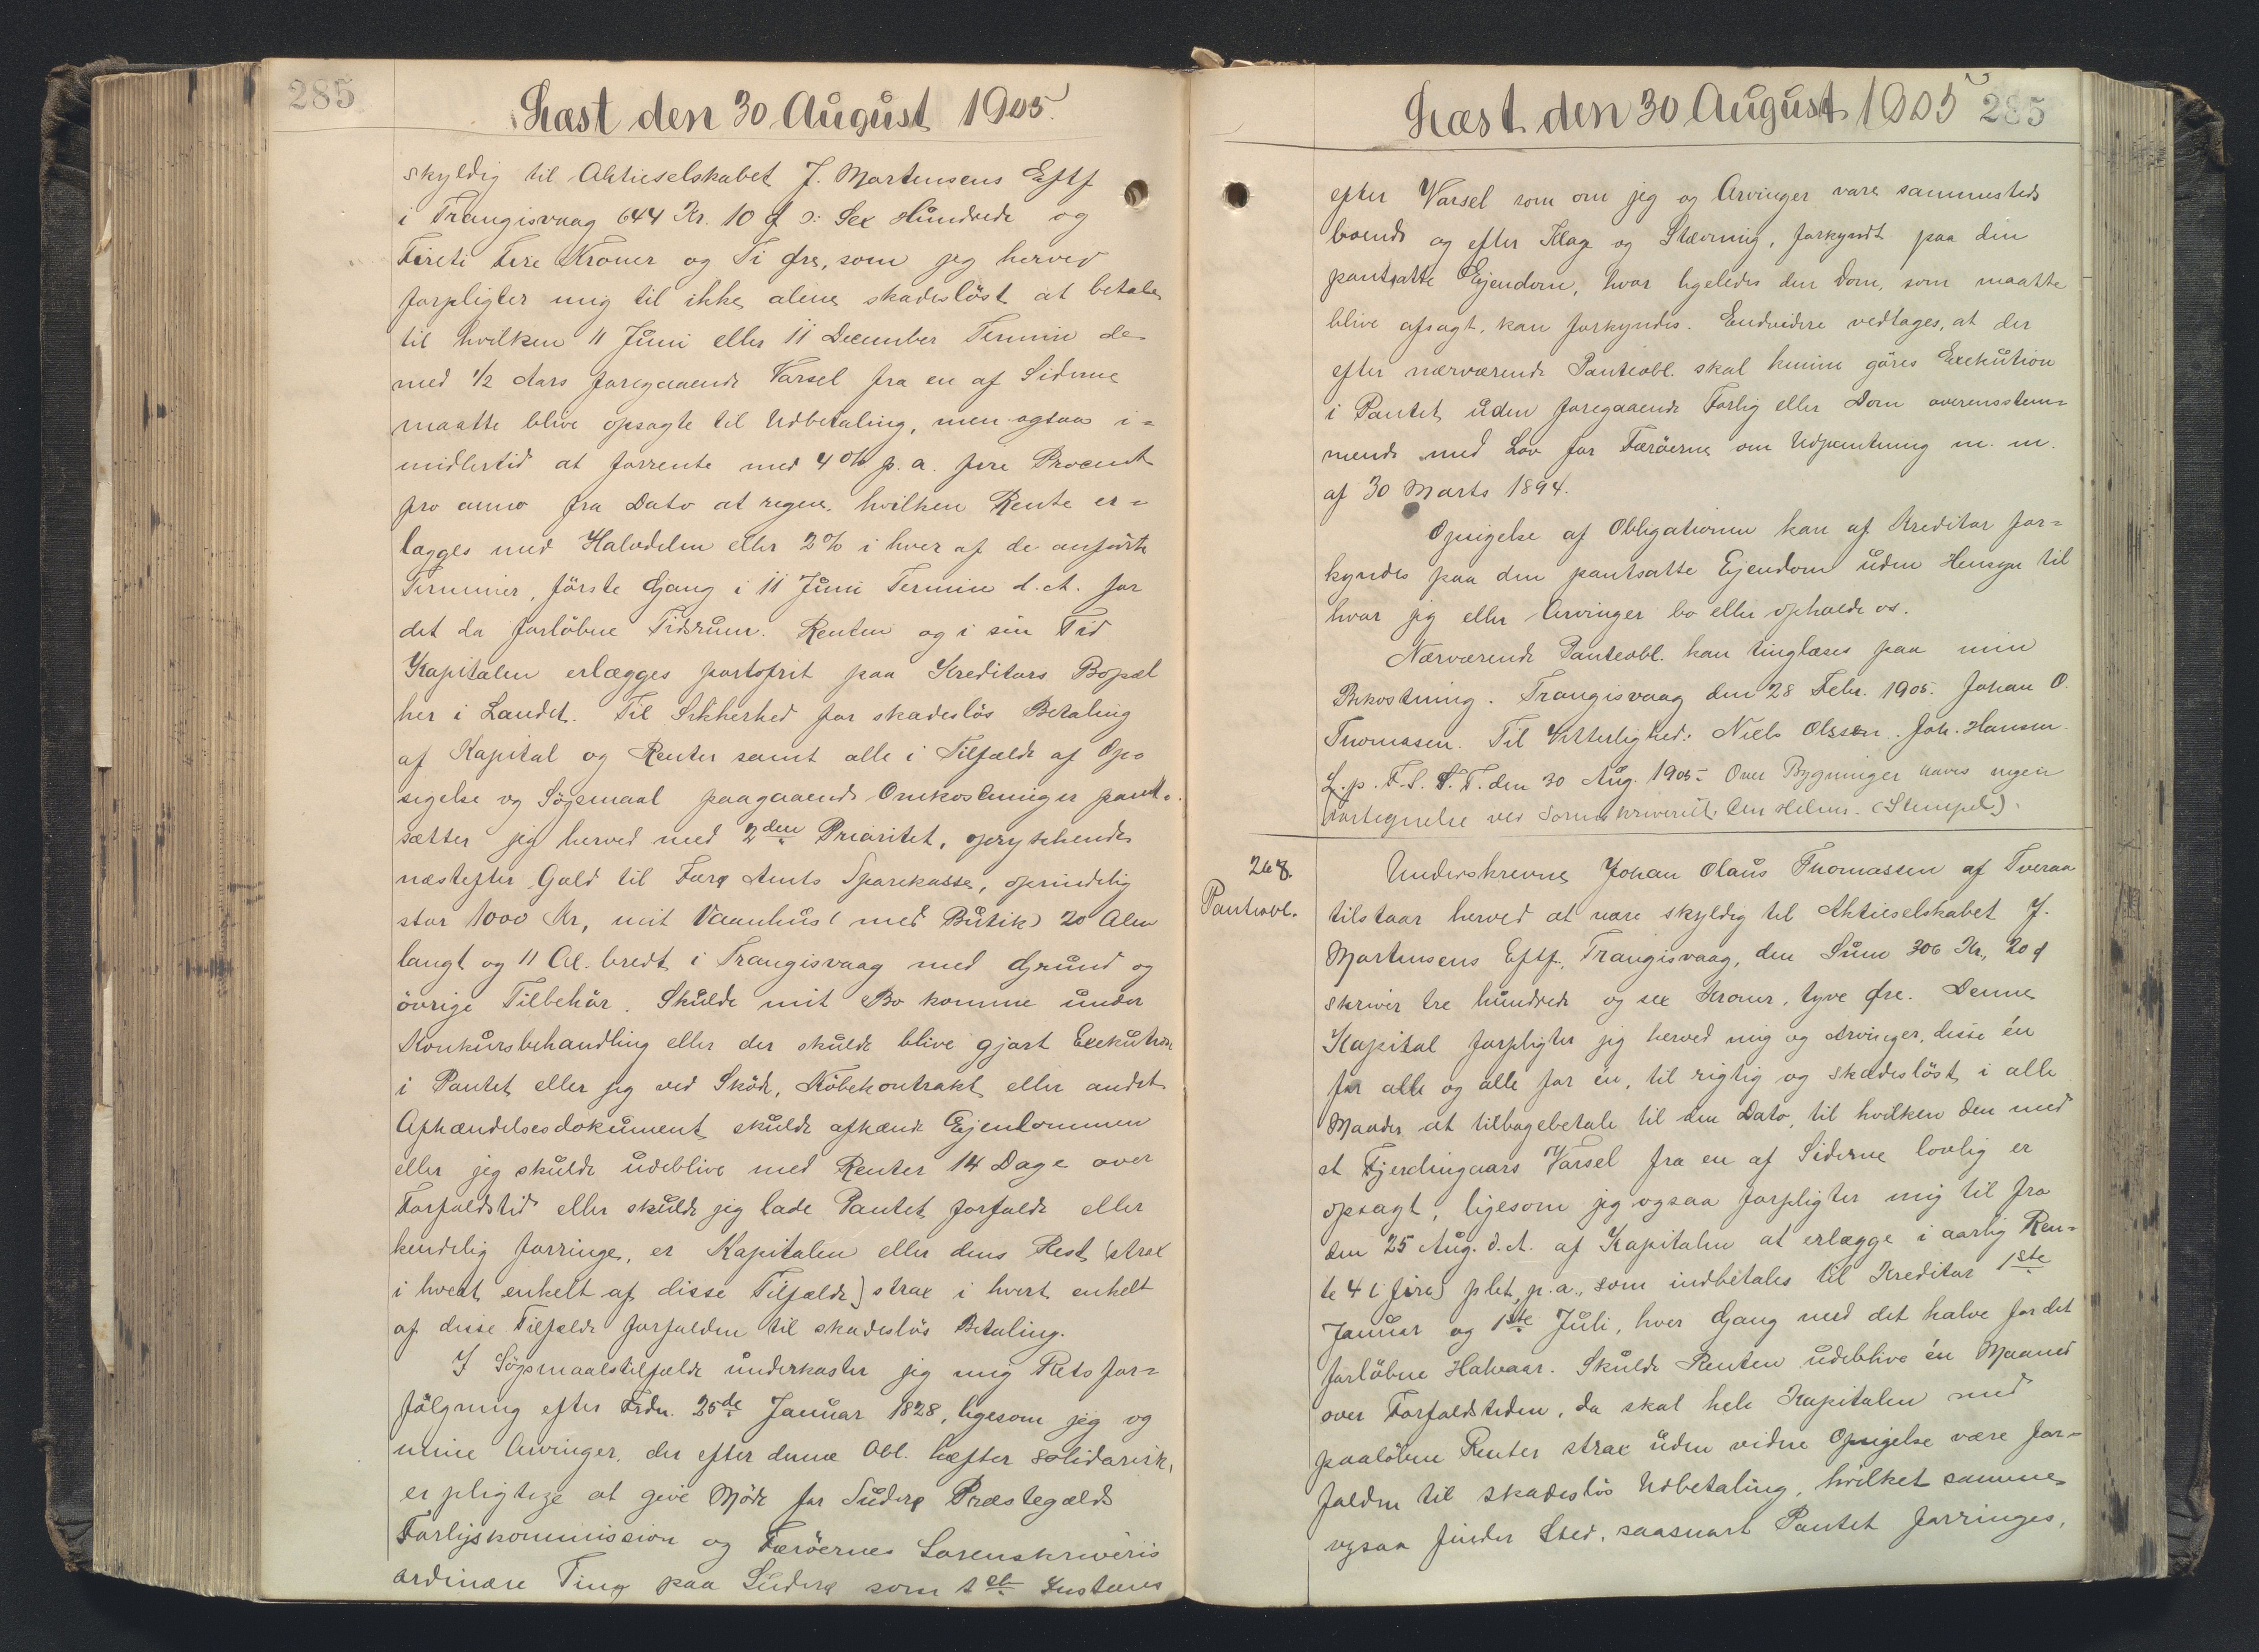 285
Læst den 30 August 1905.
skyldig til Aktieselskabet J. Mortensens Eftf
i Trangisvaag 644 Kr. 10 Ø ɔ: Sex Hundrede og
Fireti Fire Kroner og Ti Øre, som jeg herved
forpligter mig til ikke alene skadesløst at betale
til hvilken 11 Juni eller 11 December Termin de
med 1/2 Aars foregaaende Varsel fra en af Siderne
maatte blive opsagte til Udbetaling, men ogsaa i=
midlertid at forrente med 4% p. a. fire Procent
pro anno fra Dato at regne, hvilken Rente er=
lægges med Halvdelen eller 2% i hver af de anførte
Terminer, første Gang i 11 Juni Termin d. A. for
det da forløbne Tidsrum. Renten og i sin Tid
Kapitalen erlægges portofrit paa Kreditors Bopæl
her i Landet. Til Sikkerhed for skadesløs Betaling
af Kapital og Renter samt alle i Tilfælde af Op=
sigelse og Søgsmaal paagaaende Omkostninger pant=
sætter jeg herved med 2den Prioritet, oprykkende
næstefter Gæld til Færø Amts Sparekasse, oprindelig
stor 1000 Kr, mit Vaanhus (med Butik) 20 Alen
langt og 11 Al. bredt i Trangisvaag med Grund og
øvrige Tilbehør. Skulde mit Bo komme under
Konkursbehandling eller der skulde blive gjort Exekution
i Pantet eller jeg ved Skøde, Købekontrakt eller andet
Afhændelsesdokument skulde afhænde Ejendommen
eller jeg skulde udeblive med Renter 14 Dage over
Forfaldstid eller skulde jeg lade Pantet forfalde eller
kendelig forringe, er Kapitalen eller dens Rest (strax
i hvert enkelt af disse Tilfælde) strax i hvert enkelt
af disse Tilfælde forfalden til skadesløs Betaling.
I Søgsmaalstilfælde underkaster jeg mig Rets for=
følgning efter Frdn. 25de Januar 1828, ligesom jeg og
mine Arvinger, der efter denne Obl. hæfter solidarisk,
er pligtige at give Møde for Suderø Præstegælds
Forligskommission og Færøernes Sorenskriveris
ordinære Ting paa Suderø som 1ste Instans
Læst den 30 August 1905 285
efter Varsel som om jeg og Arvinger vare sammesteds
boende og efter Klage og Stævning, forkyndt paa den
pantsatte Ejendom, hvor ligeledes den Dom, som maatte
blive afsagt, kan forkyndes. Endvidere vedtages, at der
efter nærværende Panteobl. skal kunne gøres Exekution
i Pantet uden foregaaende Forlig eller Dom overensstem=
mende med Lov for Færøerne om Udpantning m. m.
af 30 Marts 1894.
Opsigelse af Obligationen kan af Kreditor for=
kyndes paa den pantsatte Ejendom uden Hensyn til
hvor jeg eller Arvinger bo eller opholde os.
Nærværende Panteobl. kan tinglæses paa min
Bekostning. Trangisvaag den 28 Febr. 1905. Johan O.
Thomasen. Til Vitterlighed: Niels Olsen. Joh. Hansen.
L. p. F. S. S. T. den 30 Aug. 1905. Over Bygninger haves ingen
Fortegnelse ved Sorenskriveriet. (Stempel).
268.
Panteobl.
Underskrevne Johan Olaus Thomassen af Tveraa
tilstaar herved at være skyldig til Aktieselskabet J.
Mortensens Eftf., Trangisvaag, den Sum 306 Kr., 20 Ø
skriver tre hundrede og sex Kroner, tyve Øre. Denne
Kapital forpligter jeg herved mig og Arvinger, disse én
for alle og alle for én, til rigtig og skadesløst i alle
Maader at tilbagebetale til den Dato, til hvilken den med
et Fjerdingaars Varsel fra en af Siderne lovlig er
opsagt, ligesom jeg ogsaa forpligter mig til fra
den 25 Aug. d. A. af Kapitalen at erlægge i aarlig Ren=
te 4 (fire) pCt. p. a., som indbetales til Kreditor 1ste
Januar og 1ste Juli, hver Gang med det halve for det
forløbne Halvaar. Skulde Renten udeblive én Maaned
over Forfaldstiden, da skal hele Kapitalen med
paaløbne Renter strax uden videre Opsigelse være for=
falden til skadesløs Udbetaling, hvilket samme
ogsaa finder Sted, saasnart Pantet forringes,